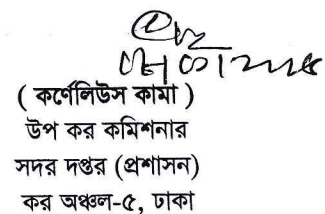 ( কর্ণেলিউস কামা )
উপ কর কমিশনার
সদর দপ্তর (প্রশাসন)
কর অঞ্চল-৫, ঢাকা